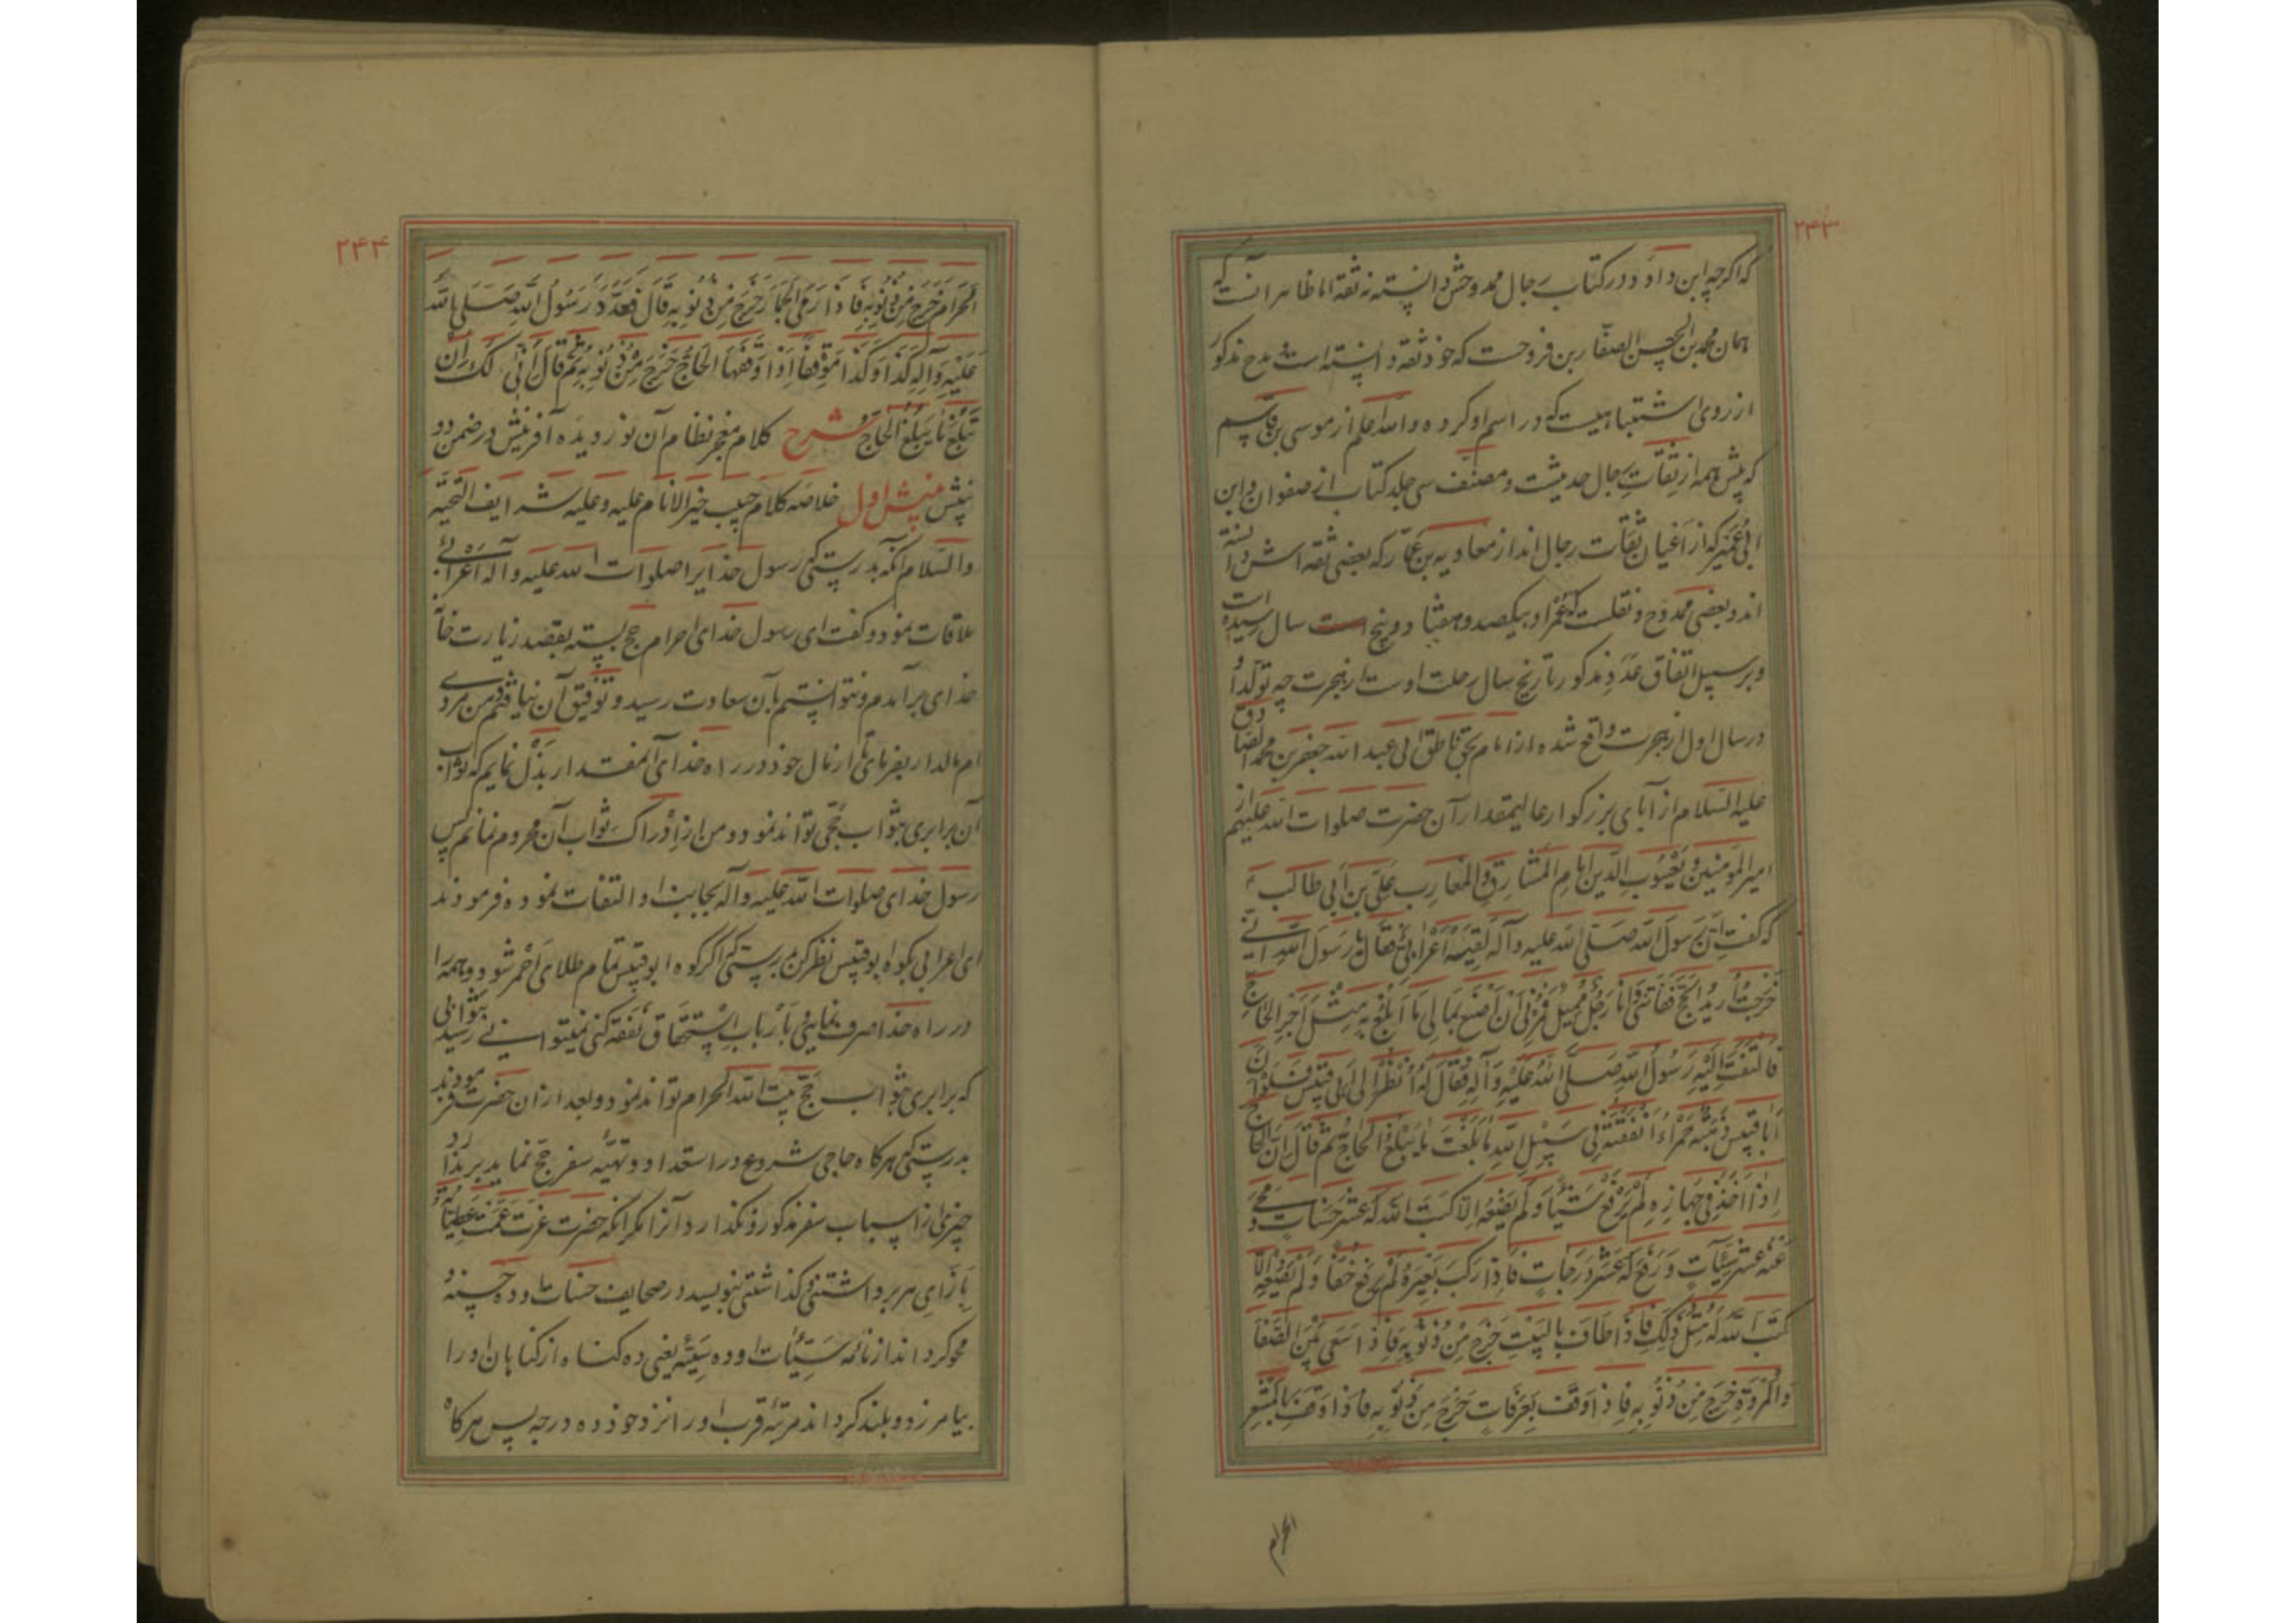 ۲۴۳
که اگرچه ابن داود در کتاب رجال ممدوحش دانسته نه ثقه اما ظاهر آنست که
همان محمد بن الحسن الصفار بن فروخست که خود ثقه دانسته است و مدح مذکور
از روی اشتباهیست که در اسم او کرده والله اعلم از موسی بن قاسم
که پیش همه از ثقات رجال حدیثست و مصنف سی جلد کتاب از صفوان و ابن
ابی عمیر که از اعیان ثقات رجال‌اند از معاویه بن عمار که بعضی ثقه اش دانسته
اند و بعضی ممدوح و نقلست که عمر او بیکصد و هفتاد و پنج سال رسیده است
و بر سبیل اتفاق عدد مذکور تاریخ سال رحلت اوست از هجرت چه تولد او
در سال اول از هجرت واقع شده از امام بحق ناطق ابی عبد الله جعفر بن محمد الصادق
علیه السلام از آبای بزرگوار عالیمقدار آن حضرت صلوات الله علیهم از
امیر المومنین و یعسوب الدین امام المشارق و المغارب علی بن ابی طالب ع
که گفت اِنَّ رَسولَ الله صَلَّی الله علیه وآله لَقِیَهُ اَعْرابِیٌّ فَقالَ یا رَسُولَ اللهِ اِنّی
خَرَجْتُ اُریدُ الحَجَّ فَفاتَنی وَاَنَا رَجُلٌ مُمیلٌ فَمُرْنی اَنْ اَصْنَعَ بِمالی ما اَبْلُغُ بِهِ مِثْلَ اَجْرِ الحاجِّ
فَالْتَفَتَ اِلَیْهِ رَسُولُ اللهِ صَلَّی اللهُ عَلَیْهِ وَآلِهِ فَقالَ لَهُ اُنْظُرْ اِلی اَبی قُبَیْس فَلَوْ اَنَّ
اَبا قُبَیْس ذَهَبَةٌ حَمْراءُ اَنْفَقْتَهُ فی سَبیلِ اللهِ ما بَلَغْتَ ما یَبْلُغُ الحاجُّ ثُمَّ قالَ اِنَّ الحاجَّ
اِذا اَخَذَ فی جَهازِهِ لَمْ یَرْفَعْ شَیْئًا وَلَمْ یَضَعْهُ اِلّا کَتَبَ اللهُ لَهُ عَشْرَ حَسَناتٍ وَ مَحی
عَنْهُ عَشْرَ سَیِّئاتٍ وَ رَفَعَ لَهُ عَشْرَ دَرَجاتٍ فَاِذا رَکِبَ بَعیرَهُ لَمْ یَرْفَعْ خُفًّا وَلَمْ یَضَعْهُ اِلّا
کَتَبَ اللهُ لَهُ مِثْلَ ذلِکَ فَاِذا طافَ بِالبَیْتِ خَرَجَ مِنْ ذُنُوبِهِ فَاِذا سَعی بَیْنَ الصَّفا
وَالمَرْوَةِ خَرَجَ مِنْ ذُنُوبِهِ فَاِذا وَقَفَ بِعَرَفاتٍ خَرَجَ مِنْ ذُنُوبِهِ فَاِذا وَقَفَ بِالمَشْعَرِ
الحرام
۲۴۴
الحَرامِ خَرَجَ مِنْ ذُنُوبِهِ فَاِذا رَمَی الجِمارَ خَرَجَ مِنْ ذُنُوبِهِ قالَ فَعَدَّدَ رَسُولُ اللهِ صَلَّی الله
عَلَیْهِ وَآلِهِ کَذا وَکَذا مَوْقِفًا اِذا وَقَفَهَا الحاجُّ خَرَجَ مِنْ ذُنُوبِهِ ثُمَّ قالَ اَنّی لَکَ اَنْ
تَبْلُغَ ما یَبْلُغُ الحاجُّ شرح کلام معجز نظام آن نور دیده آفرینش در ضمن دو
بینش بینش اول خلاصه کلام حبیب خیر الانام علیه و علیه شرایف التحیة
والسلام آنکه بدرستی که رسول خدایرا صلوات الله علیه و آله اعرابی
ملاقات نمود و گفت ای رسول خدای احرام حج بسته بقصد زیارت خانه
خدای برآمدم و نتوانستم بآن سعادت رسید و توفیق آن نیافتم و من مردی
ام مالدار بفرمای از مال خود در راه خدای آنمقدار بذل نمایم که ثواب
آن برابری بثواب حجی تواند نمود و من از ادراک ثواب آن محروم نمانم پس
رسول خدای صلوات الله علیه و آله بجانب او التفات نموده فرمودند
ای اعرابی بکوه ابوقبیس نظر کن بدرستی که اگر کوه ابوقبیس تمام طلای احمر شود و همه را
در راه خدا صرف نمایی و بارباب استحقاق نفقه کنی نمیتوانی رسید بثوابی
که برابری بثواب حج بیت الله الحرام تواند نمود و بعد از آن حضرت فرمودند
بدرستی که هرگاه حاجی شروع در استعداد و تهیه سفر حج نماید برندارد
چیزی از اسباب سفر مذکور و نگذارد آنرا مگر آنکه حضرت عزت عمت عطیاته
بازای هر برداشتنی و گذاشتنی بنویسد در صحایف حسنات او ده حسنه و
محو گرداند از نامه سیئات او ده سیئه یعنی ده گناه از گناهان او را
بیامرزد و بلند گرداند مرتبه قرب او را نزد خود ده درجه پس هرگاه